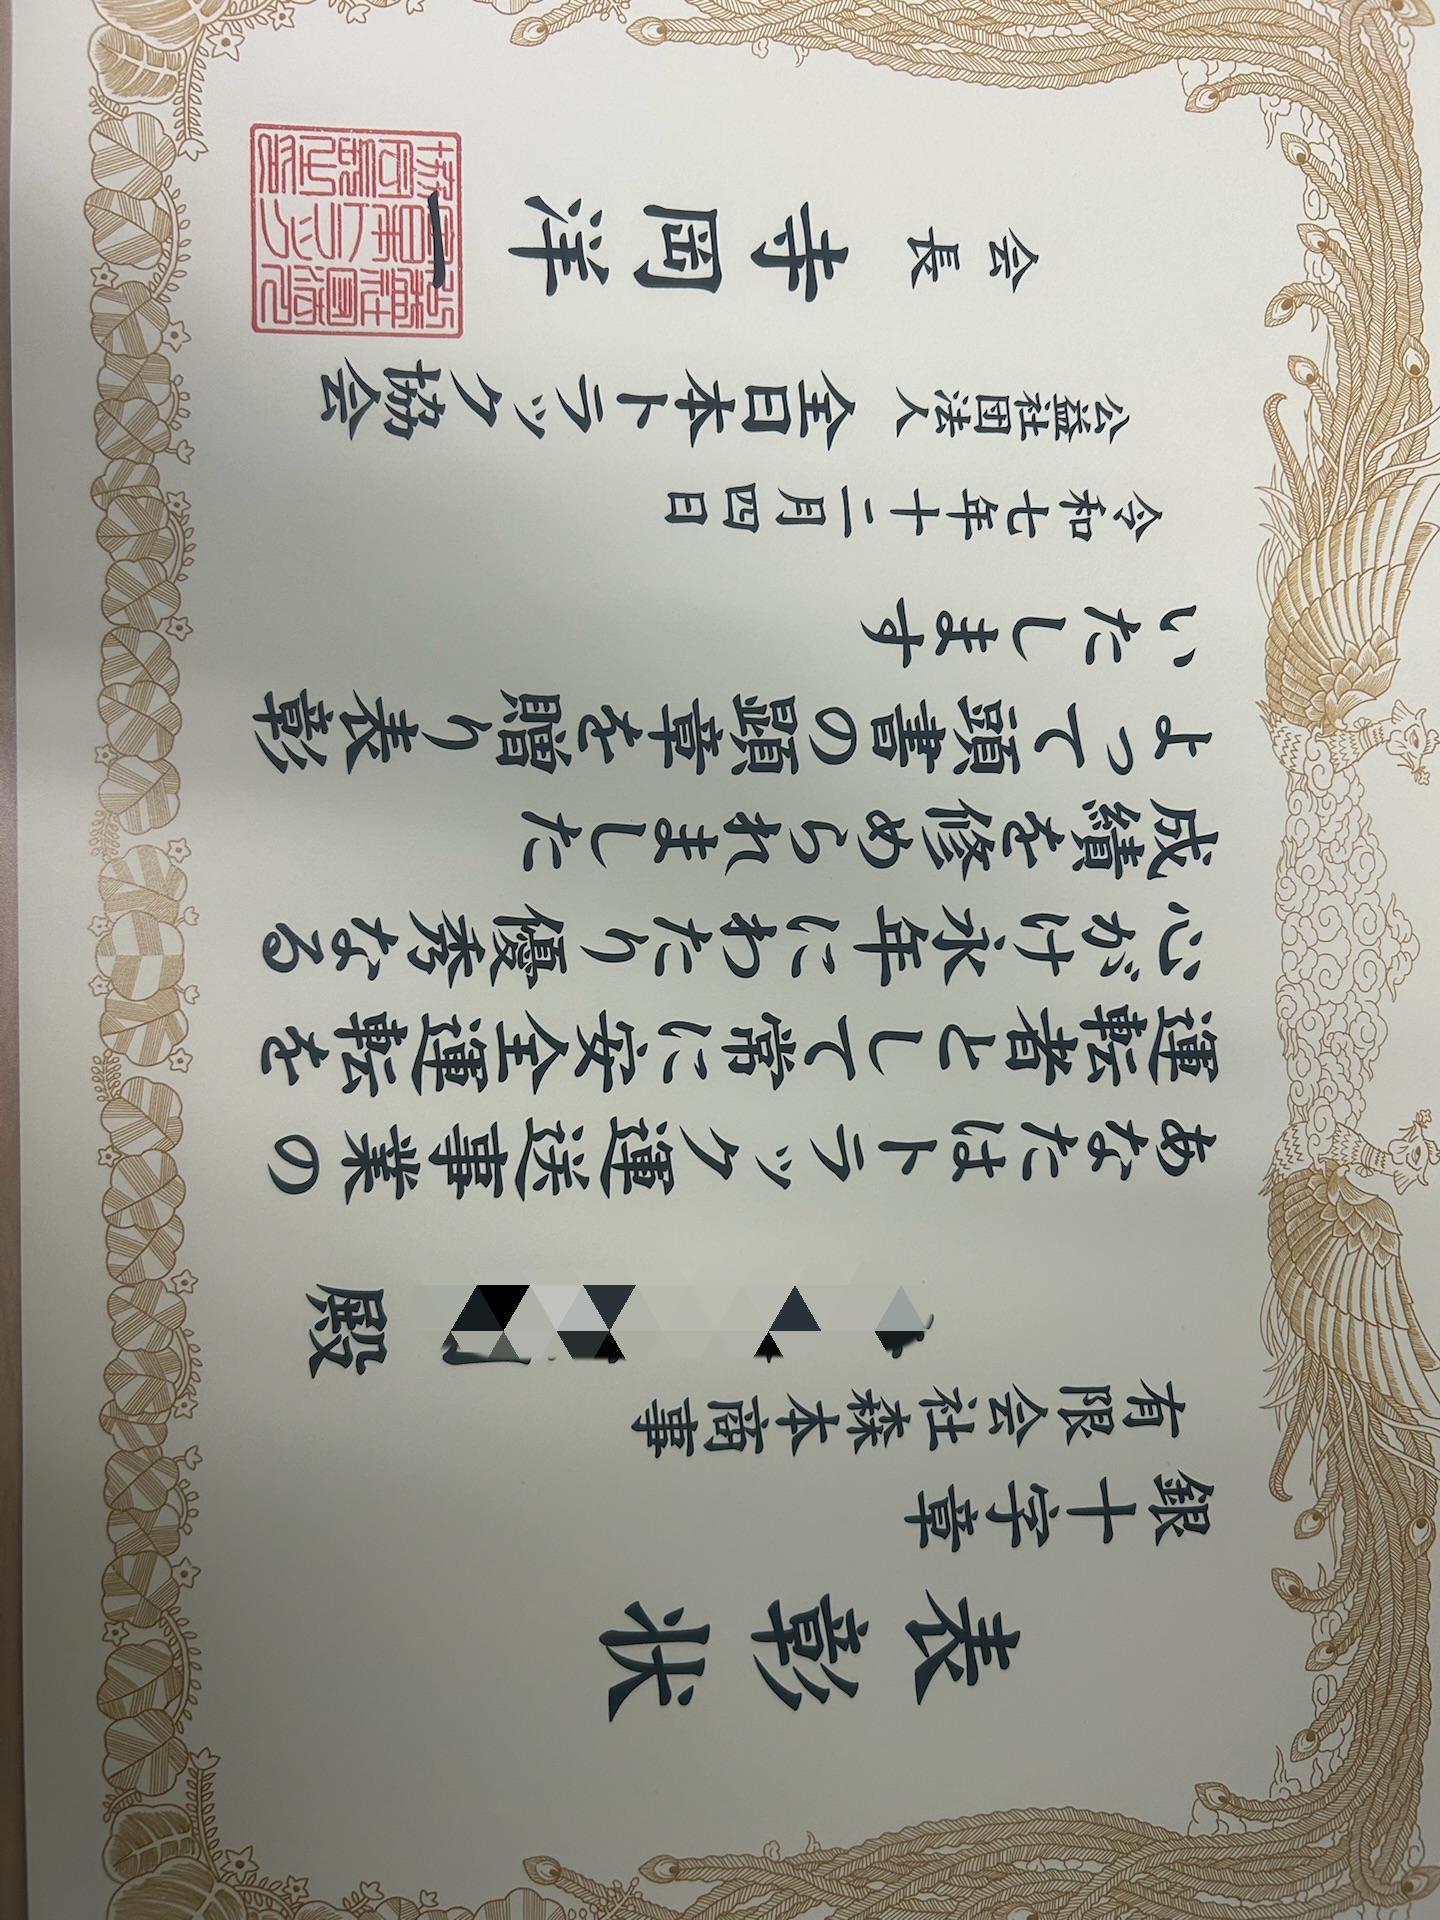 表彰状
銀十字章
有限会社森本商事
殿
あなたはトラック運送事業の
運転者として常に安全運転を
心がけ永年にわたり優秀なる
成績を修められました
よって頭書の顕章を贈り表彰
いたします
令和七年十二月四日
公益社団法人 全日本トラック協会
会長 寺岡洋一